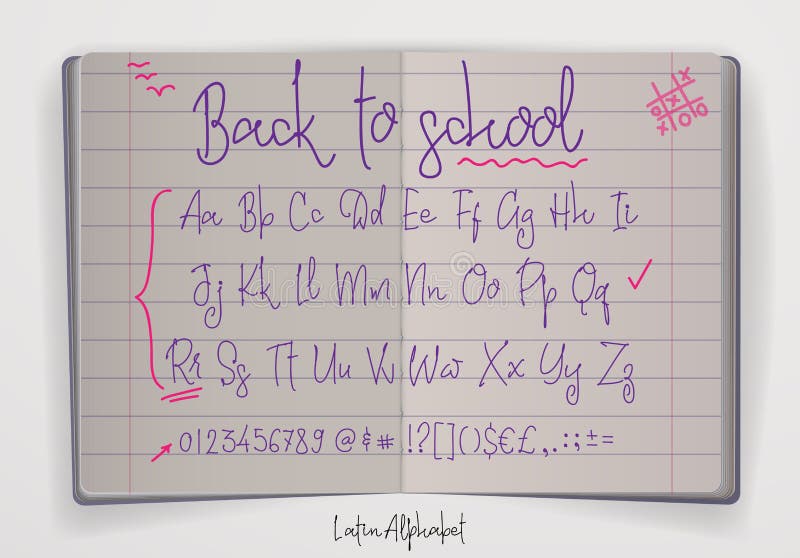 Back to school
Aa Bb Cc Dd Ee Ff Gg Hh Ii
Jj Kk Ll Mm Nn Oo Pp Qq
Rr Ss Tt Uu Vv Ww Xx Yy Zz
0123456789 @&# !?[]()$€£,.:;±=
Latin Alphabet